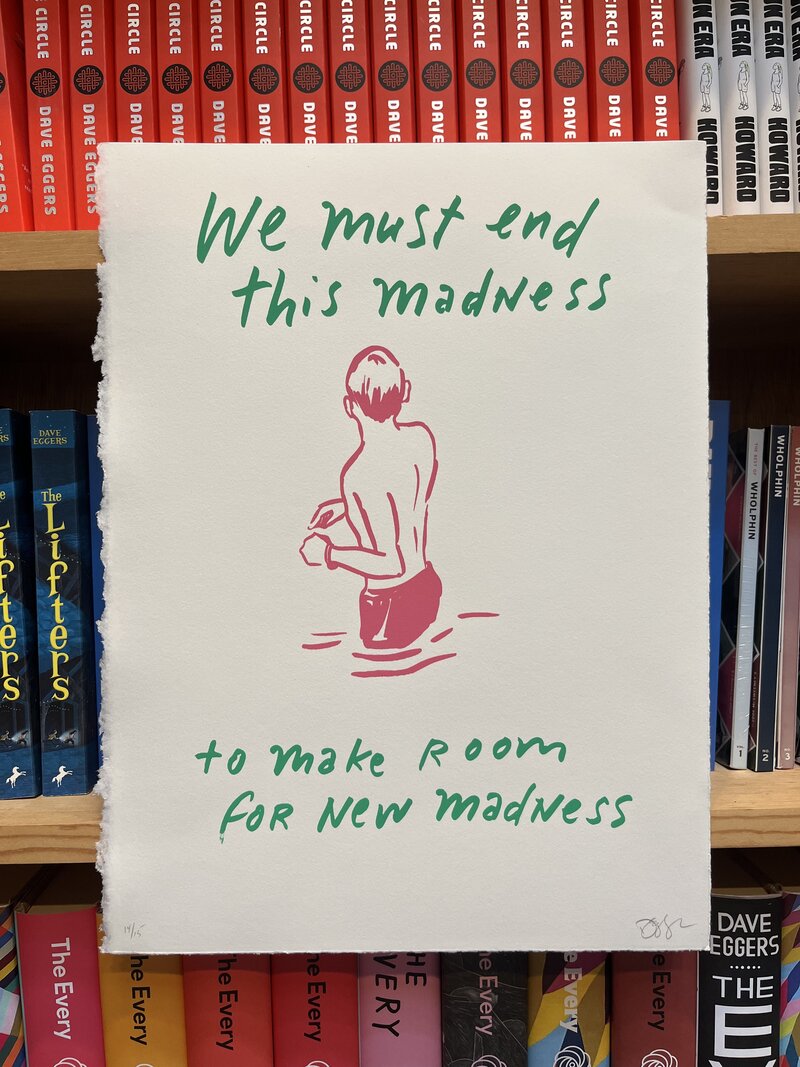 CIRCLE
DAVE EGGERS
CIRCLE
DAVE EGGERS
CIRCLE
DAVE
CIRCLE
DAVE
CIRCLE
DAVE
CIRCLE
DAVE
CIRCLE
DAVE
CIRCLE
DAVE
CIRCLE
DAVE
CIRCLE
DAVE
CIRCLE
DAVE
CIRCLE
DAVE
CIRCLE
DAVE
CIRCLE
DAVE
ERA
HOWARD
ERA
HOWARD
ERA
HOWARD
We must end
this madness
to make room
for new madness
14/15
DAVE
EGGERS
The
Lifters
Lifters
THE BEST OF WHOLPHIN
1
WHOLPHIN
NO. 2
WHOLPHIN
3
The Every
The Every
The Every
The Every
THE
EVERY
The Every
The Every
The Every
DAVE
EGGERS
THE